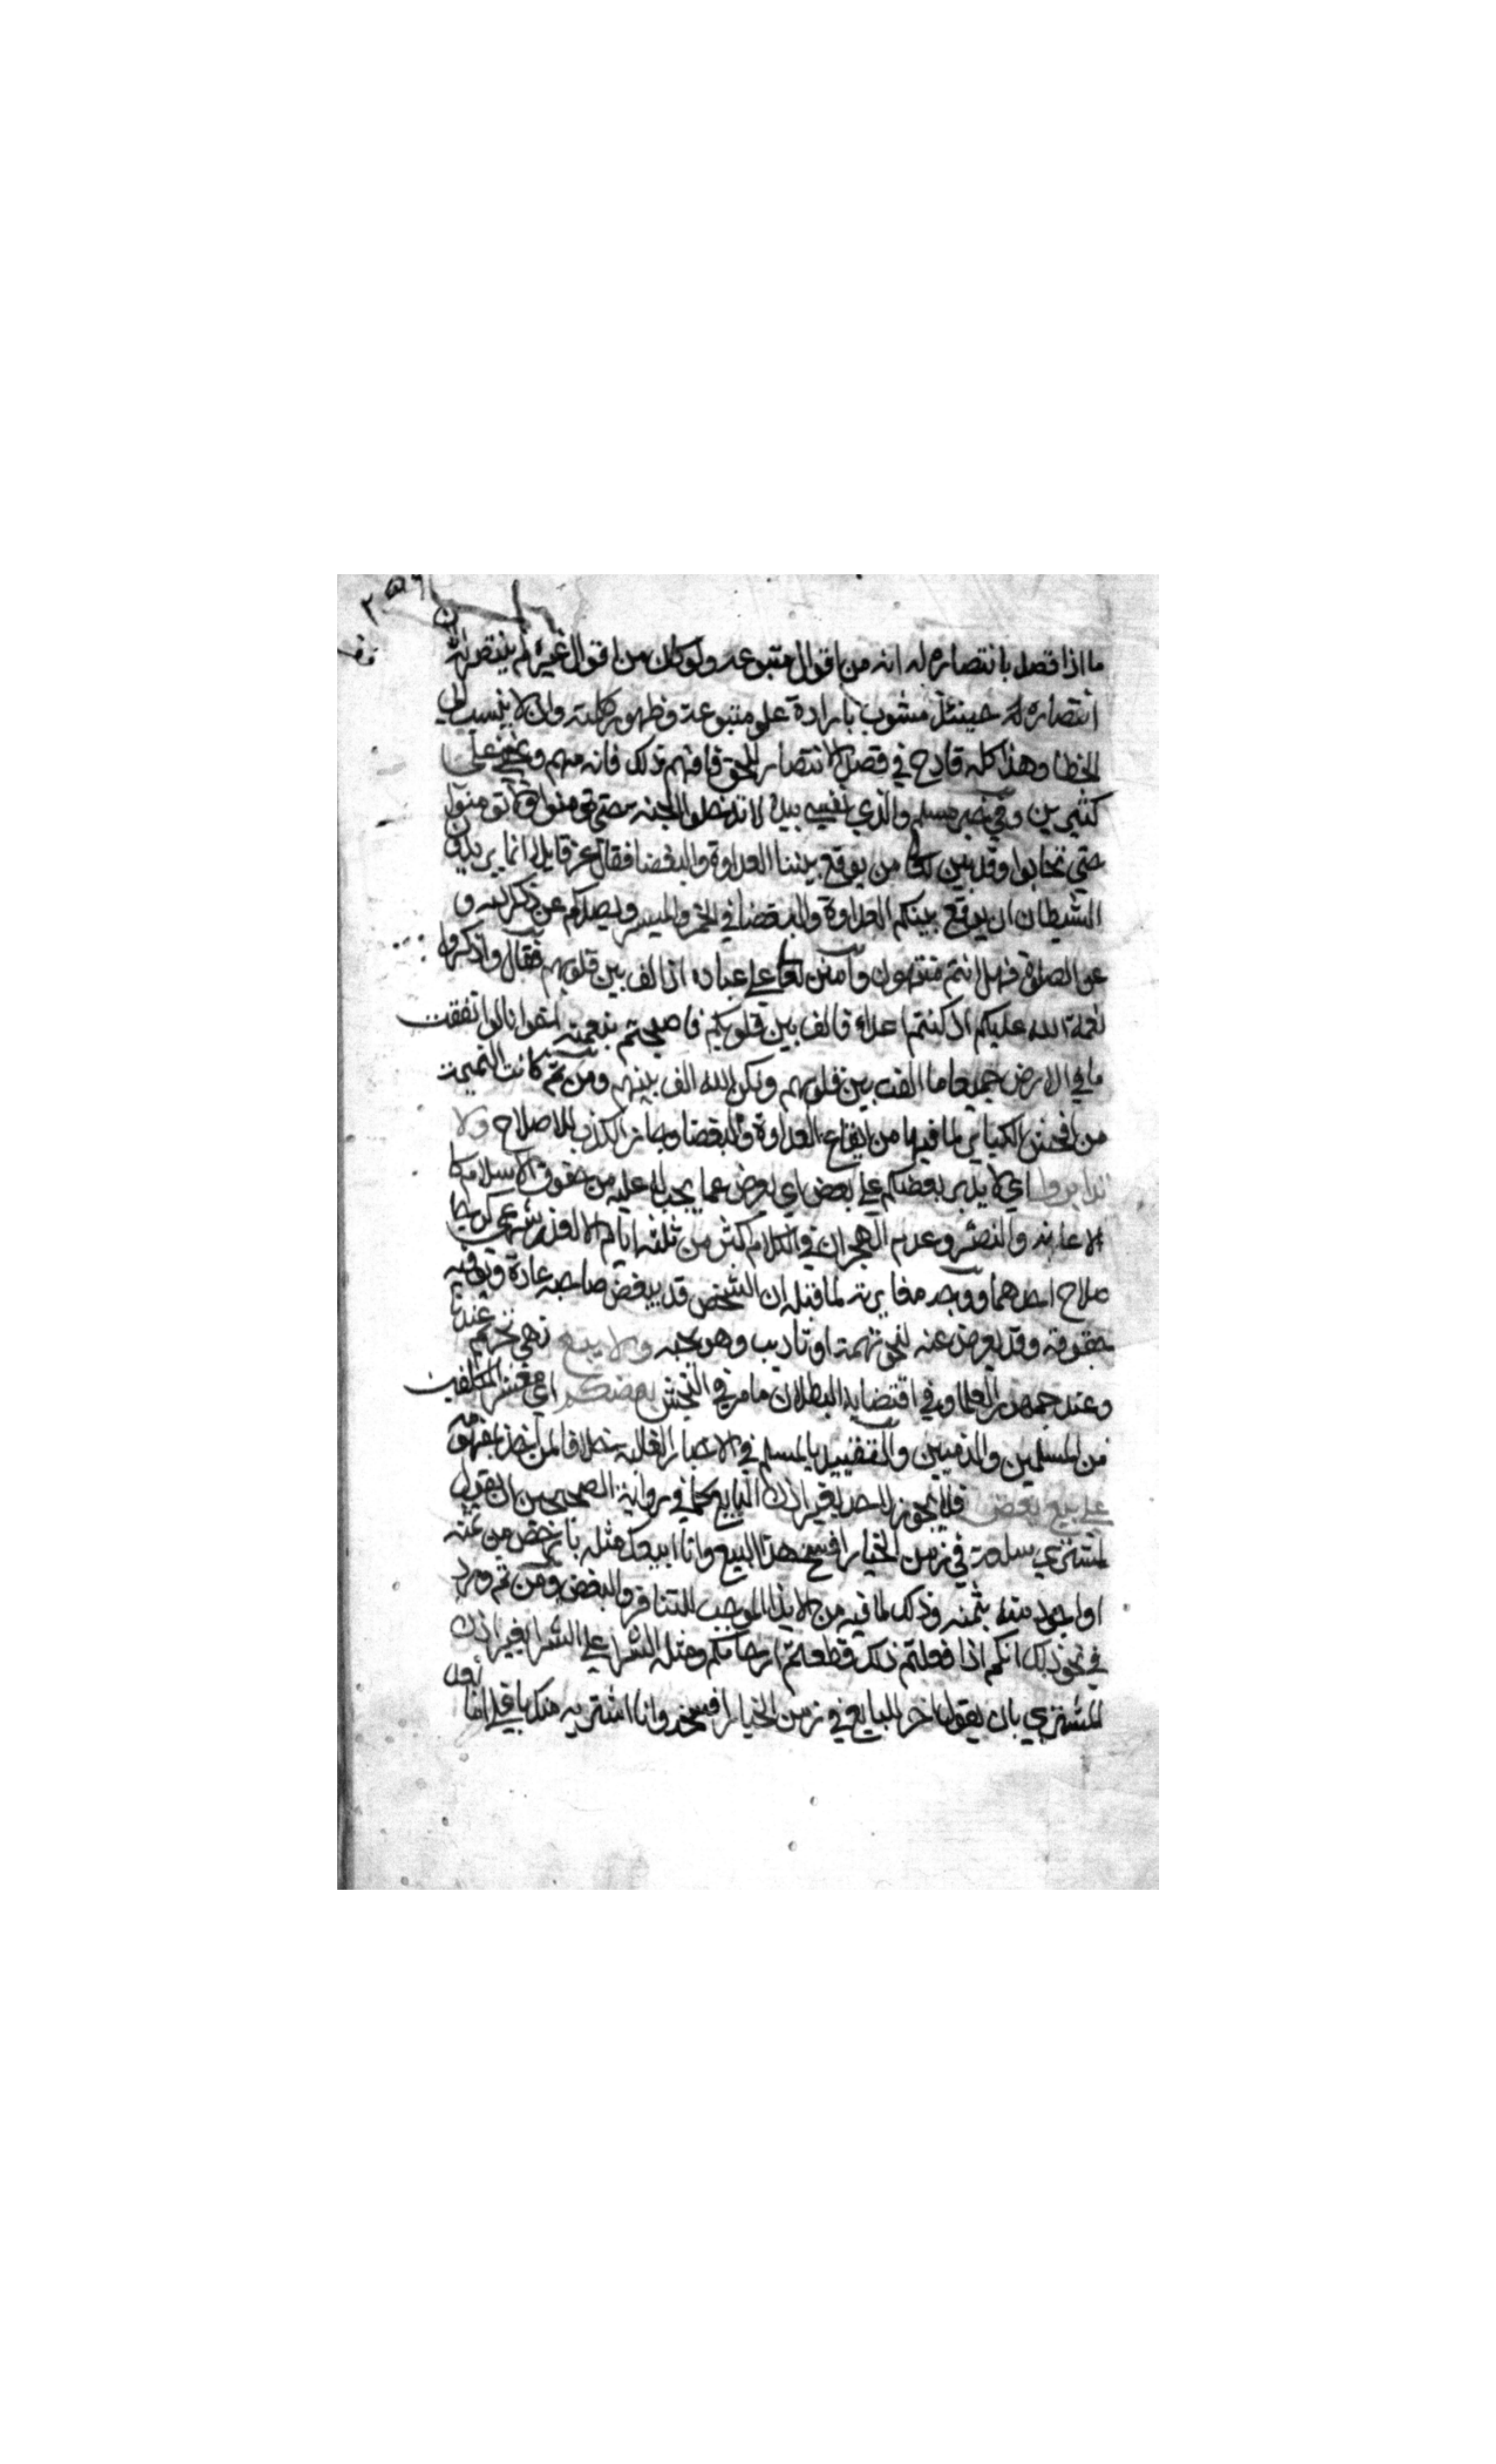 ما اذا قصد بانتصاره له انه من اقوال متبوعه ولو كان من اقوال غيره لم ينتصر له
انتصاره له حينئذ مشوب بارادة علو متبوعه وظهور كلمته وان لا ينسب الى
الخطا وهذا كله قادح في قصد الانتصار للحق فافهم ذلك فانه مهم وخفي على
كثيرين وفي خبر مسلم والذي نفسي بيده لا تدخلوا الجنه حتى تومنوا ولا تومنون
حتى تحابوا وقد بين تعالى من يوقع بيننا العداوة والبغضا فقال عز قايلا انما يريد
الشيطان ان يوقع بينكم العداوة والبغضا في الخمر والميسر ويصدكم عن ذكر الله و
عن الصلوة فهل انتم منتهون وامتن تعالى على عباده اذ الف بين قلوبهم فقال واذكروا
نعمة الله عليكم اذ كنتم اعداء فالف بين قلوبكم فاصبحتم بنعمته اخوانا لو انفقت
ما في الارض جميعا ما الفت بين قلوبهم ولكن الله الف بينهم ومن ثم كانت النميمة
من افحش الكباير لما فيها من ايقاع العداوة والبغضا وجاز الكذب للاصلاح ولا
تدابروا اي لا يدبر بعضكم على بعض اي يعرض عما يجب له عليه من حقوق الاسلام كا
لاعانه والنصر وعدم الهجران في الكلام اكثر من ثلثه ايام الا لعذر شرعي كرجا
صلاح احدهما ووجه مغايرته لما قبله ان الشخص قد يبغض صاحبه عادة ويوفيه
حقوقه وقد يعرض عنه لنحو تهمة او تاديب وهو يحبه ولا يبع نهي تحريم عندنا
وعند جمهور العلما وفي اقتضايه البطلان ما مر في النجش بعضكم اي معشر المكلفين
من المسلمين والذميين والتقييد بالمسلم في الاخبار للغالب خلافا لمن اخذ بمفهومه
على بيع بعض فلا يجوز لاحد بغير اذن البايع كما في رواية الصحيحين ان يقول
لمشتري سلعة في زمن الخيار افسخ هذا البيع وانا ابيعك مثله بارخص من ثمنه
او اجود منه بثمنه وذلك لما فيه من الايذا الموجب للتنافر والبغض ومن ثم ورد
في نحو ذلك انكم اذا فعلتم ذلك قطعتم ارحامكم ومثله الشرا على الشرا بغير اذن
المشتري بان يقول اخر للبايع في زمن الخيار افسخه وانا اشتريه منك باغلا اما بعد